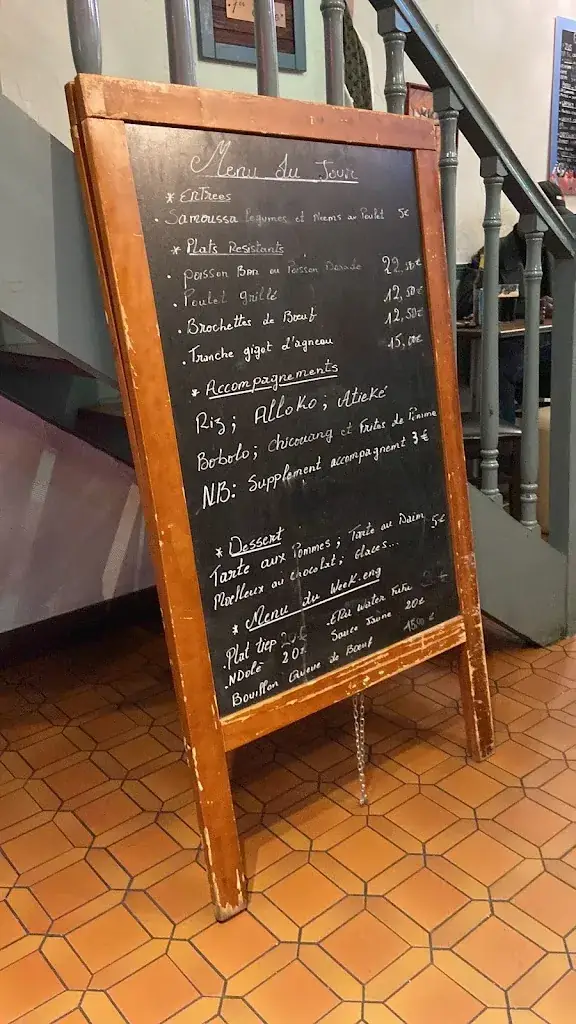 Menu du Jour
* Entrees
. Samoussa legumes et Neems au Poulet 5€
* Plats Resistants
. poisson Bar ou Poisson Dorade 22,50€
. Poulet grillé 12,50€
. Brochettes de Bœuf 12,50€
. Tranche gigot d'agneau 15,00€
* Accompagnements
Riz ; Alloko ; Atieké
Bobolo ; chicouang et Frites de Pomme
NB: Supplement accompagnemt 3€
* Dessert
Tarte aux Pommes ; Tarte au Daim 5€
Moelleux au chocolat ; Glaces...
* Menu du Week.eng
. Plat tiep 20€ . Eru water Fufu
. NDolé 20€ Sauce Jaune 20€
Bouillon Queue de Bœuf 15,00€